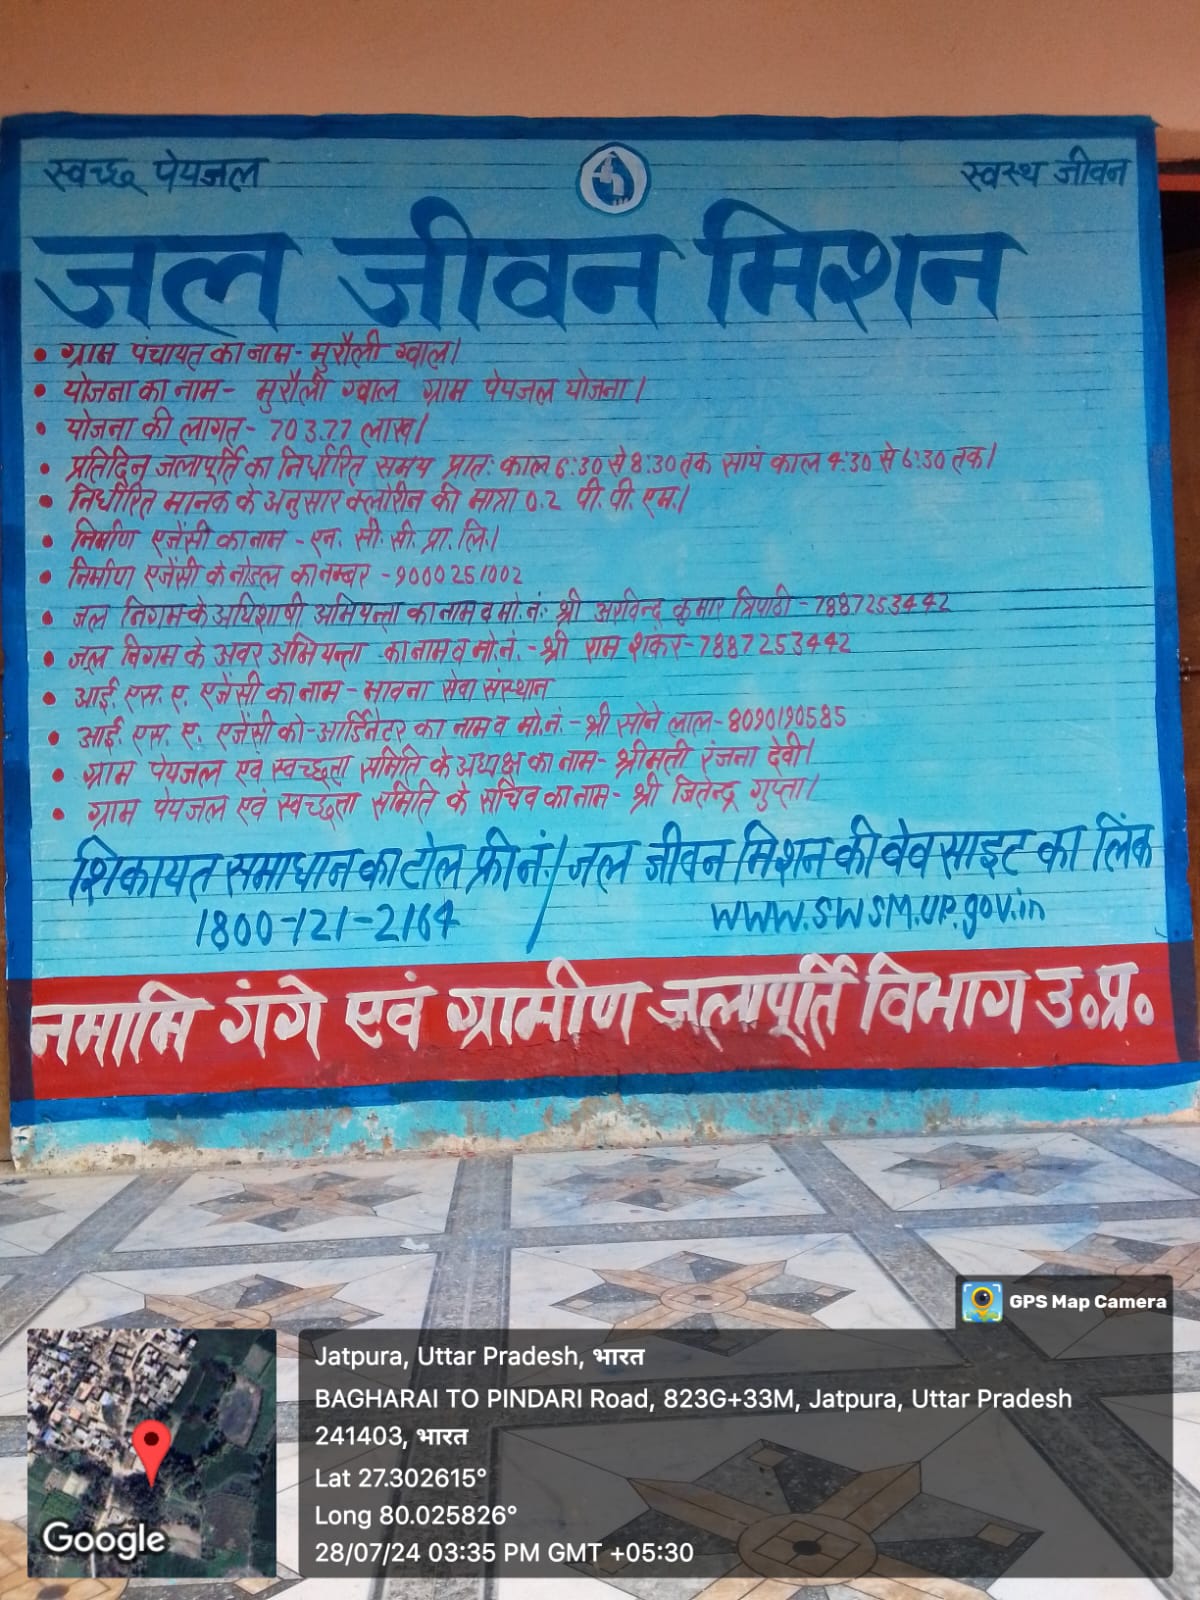 स्वच्छ पेयजल
स्वस्थ जीवन
जल जीवन मिशन
• ग्राम पंचायत का नाम- मुरौली ग्वाल।
• योजना का नाम- मुरौली ग्वाल ग्राम पेयजल योजना।
• योजना की लागत- 703.77 लाख।
• प्रतिदिन जलापूर्ति का निर्धारित समय प्रातः काल 6:30 से 8:30 तक सायं काल 4:30 से 6:30 तक।
• निर्धारित मानक के अनुसार क्लोरीन की मात्रा 0.2 पी. पी. एम.।
• निर्माण एजेंसी का नाम - एन. सी. सी. प्रा. लि.।
• निर्माण एजेंसी के नोडल का नम्बर - 9000251002
• जल निगम के अधिशाषी अभियन्ता का नाम व मो.नं: श्री अरविन्द कुमार त्रिपाठी - 7887253442
• जल निगम के अवर अभियन्ता का नाम व मो.नं. - श्री राम शंकर - 7887253442
• आई. एस. ए. एजेंसी का नाम - भावना सेवा संस्थान
• आई. एस. ए. एजेंसी को-आर्डिनेटर का नाम व मो.नं. - श्री सोने लाल - 8090190585
• ग्राम पेयजल एवं स्वच्छता समिति के अध्यक्ष का नाम- श्रीमती रंजना देवी।
• ग्राम पेयजल एवं स्वच्छता समिति के सचिव का नाम- श्री जितेन्द्र गुप्ता।
शिकायत समाधान का टोल फ्री नं./ जल जीवन मिशन की वेवसाइट का लिंक
1800-121-2164 / www.SWSM.UP.gov.in
नमामि गंगे एवं ग्रामीण जलापूर्ति विभाग उ.प्र.
GPS Map Camera
Jatpura, Uttar Pradesh, भारत
BAGHARAI TO PINDARI Road, 823G+33M, Jatpura, Uttar Pradesh
241403, भारत
Lat 27.302615°
Long 80.025826°
28/07/24 03:35 PM GMT +05:30
Google